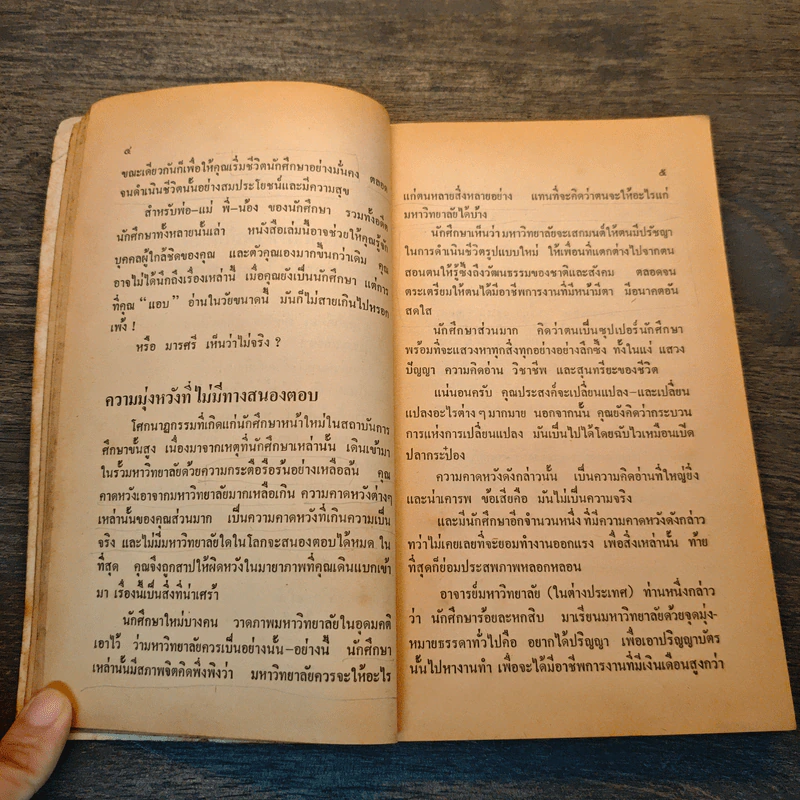 ๔
ขณะเดียวกันก็เพื่อให้คุณเริ่มชีวิตนักศึกษาอย่างมั่นคง ตลอด
จนดำเนินชีวิตนั้นอย่างสมประโยชน์และมีความสุข
สำหรับพ่อ-แม่ พี่-น้อง ของนักศึกษา รวมทั้งอดีต
นักศึกษาทั้งหลายนั้นเล่า หนังสือเล่มนี้อาจช่วยให้คุณรู้จัก
บุคคลผู้ใกล้ชิดของคุณ และตัวคุณเองมากขึ้นกว่าเดิม คุณ
อาจไม่ได้นึกถึงเรื่องเหล่านี้ เมื่อคุณยังเป็นนักศึกษา แต่การ
ที่คุณ “แอบ” อ่านในวัยขนาดนี้ มันก็ไม่สายเกินไปหรอก
เพ้ง !
หรือ มารศรี เห็นว่าไม่จริง ?
ความมุ่งหวังที่ไม่มีทางสนองตอบ
โศกนาฏกรรมที่เกิดแก่นักศึกษาหน้าใหม่ในสถาบันการ
ศึกษาขั้นสูง เนื่องมาจากเหตุที่นักศึกษาเหล่านั้น เดินเข้ามา
ในรั้วมหาวิทยาลัยด้วยความกระตือรือร้นอย่างเหลือล้น คุณ
คาดหวังเอาจากมหาวิทยาลัยมากเหลือเกิน ความคาดหวังต่างๆ
เหล่านั้นของคุณส่วนมาก เป็นความคาดหวังที่เกินความเป็น
จริง และไม่มีมหาวิทยาลัยใดในโลกจะสนองตอบได้หมด ใน
ที่สุด คุณจึงถูกสาปให้ผิดหวังในมายาภาพที่คุณเดินแบกเข้า
มา เรื่องนี้เป็นสิ่งที่น่าเศร้า
นักศึกษาใหม่บางคน วาดภาพมหาวิทยาลัยในอุดมคติ
เอาไว้ ว่ามหาวิทยาลัยควรเป็นอย่างนั้น-อย่างนี้ นักศึกษา
เหล่านั้นมีสภาพจิตคิดพึ่งพิงว่า มหาวิทยาลัยควรจะให้อะไร
๕
แก่ตนหลายสิ่งหลายอย่าง แทนที่จะคิดว่าตนจะให้อะไรแก่
มหาวิทยาลัยได้บ้าง
นักศึกษาเห็นว่ามหาวิทยาลัยจะเสกมนต์ให้ตนมีปรัชญา
ในการดำเนินชีวิตรูปแบบใหม่ ให้เพื่อนที่แตกต่างไปจากตน
สอนตนให้รู้ซึ้งถึงวัฒนธรรมของชาติและสังคม ตลอดจน
ตระเตรียมให้ตนได้มีอาชีพการงานที่มีหน้ามีตา มีอนาคตอัน
สดใส
นักศึกษาส่วนมาก คิดว่าตนเป็นซุปเปอร์นักศึกษา
พร้อมที่จะแสวงหาทุกสิ่งทุกอย่างอย่างลึกซึ้ง ทั้งในแง่ แสวง
ปัญญา ความคิดอ่าน วิชาชีพ และสุนทรียะของชีวิต
แน่นอนครับ คุณประสงค์จะเปลี่ยนแปลง-และเปลี่ยน
แปลงอะไรต่าง ๆ มากมาย นอกจากนั้น คุณยังคิดว่ากระบวน
การแห่งการเปลี่ยนแปลง มันเป็นไปได้โดยฉับไวเหมือนเปิด
ปลากระป๋อง
ความคาดหวังดังกล่าวนั้น เป็นความคิดอ่านที่ใหญ่ยิ่ง
และน่าเคารพ ข้อเสียคือ มันไม่เป็นความจริง
และมีนักศึกษาอีกจำนวนหนึ่ง ที่มีความคาดหวังดังกล่าว
ทว่าไม่เคยเลยที่จะยอมทำงานออกแรง เพื่อสิ่งเหล่านั้น ท้าย
ที่สุดก็ย่อมประสพภาพหลอกหลอน
อาจารย์มหาวิทยาลัย (ในต่างประเทศ) ท่านหนึ่งกล่าว
ว่า นักศึกษาร้อยละหกสิบ มาเรียนมหาวิทยาลัยด้วยจุดมุ่ง-
หมายธรรมดาทั่วไปคือ อยากได้ปริญญา เพื่อเอาปริญญาบัตร
นั้นไปหางานทำ เพื่อจะได้มีอาชีพการงานที่มีเงินเดือนสูงกว่า